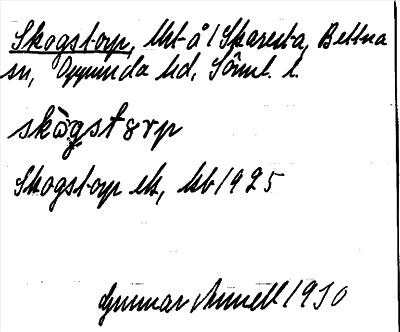 Skogstorp, lht å/Skaresta, Bettna
sn, Oppunda hd, Söml. l.
skògstørp
Skogstorp lh, kb 1925
Gunnar Annell 1930